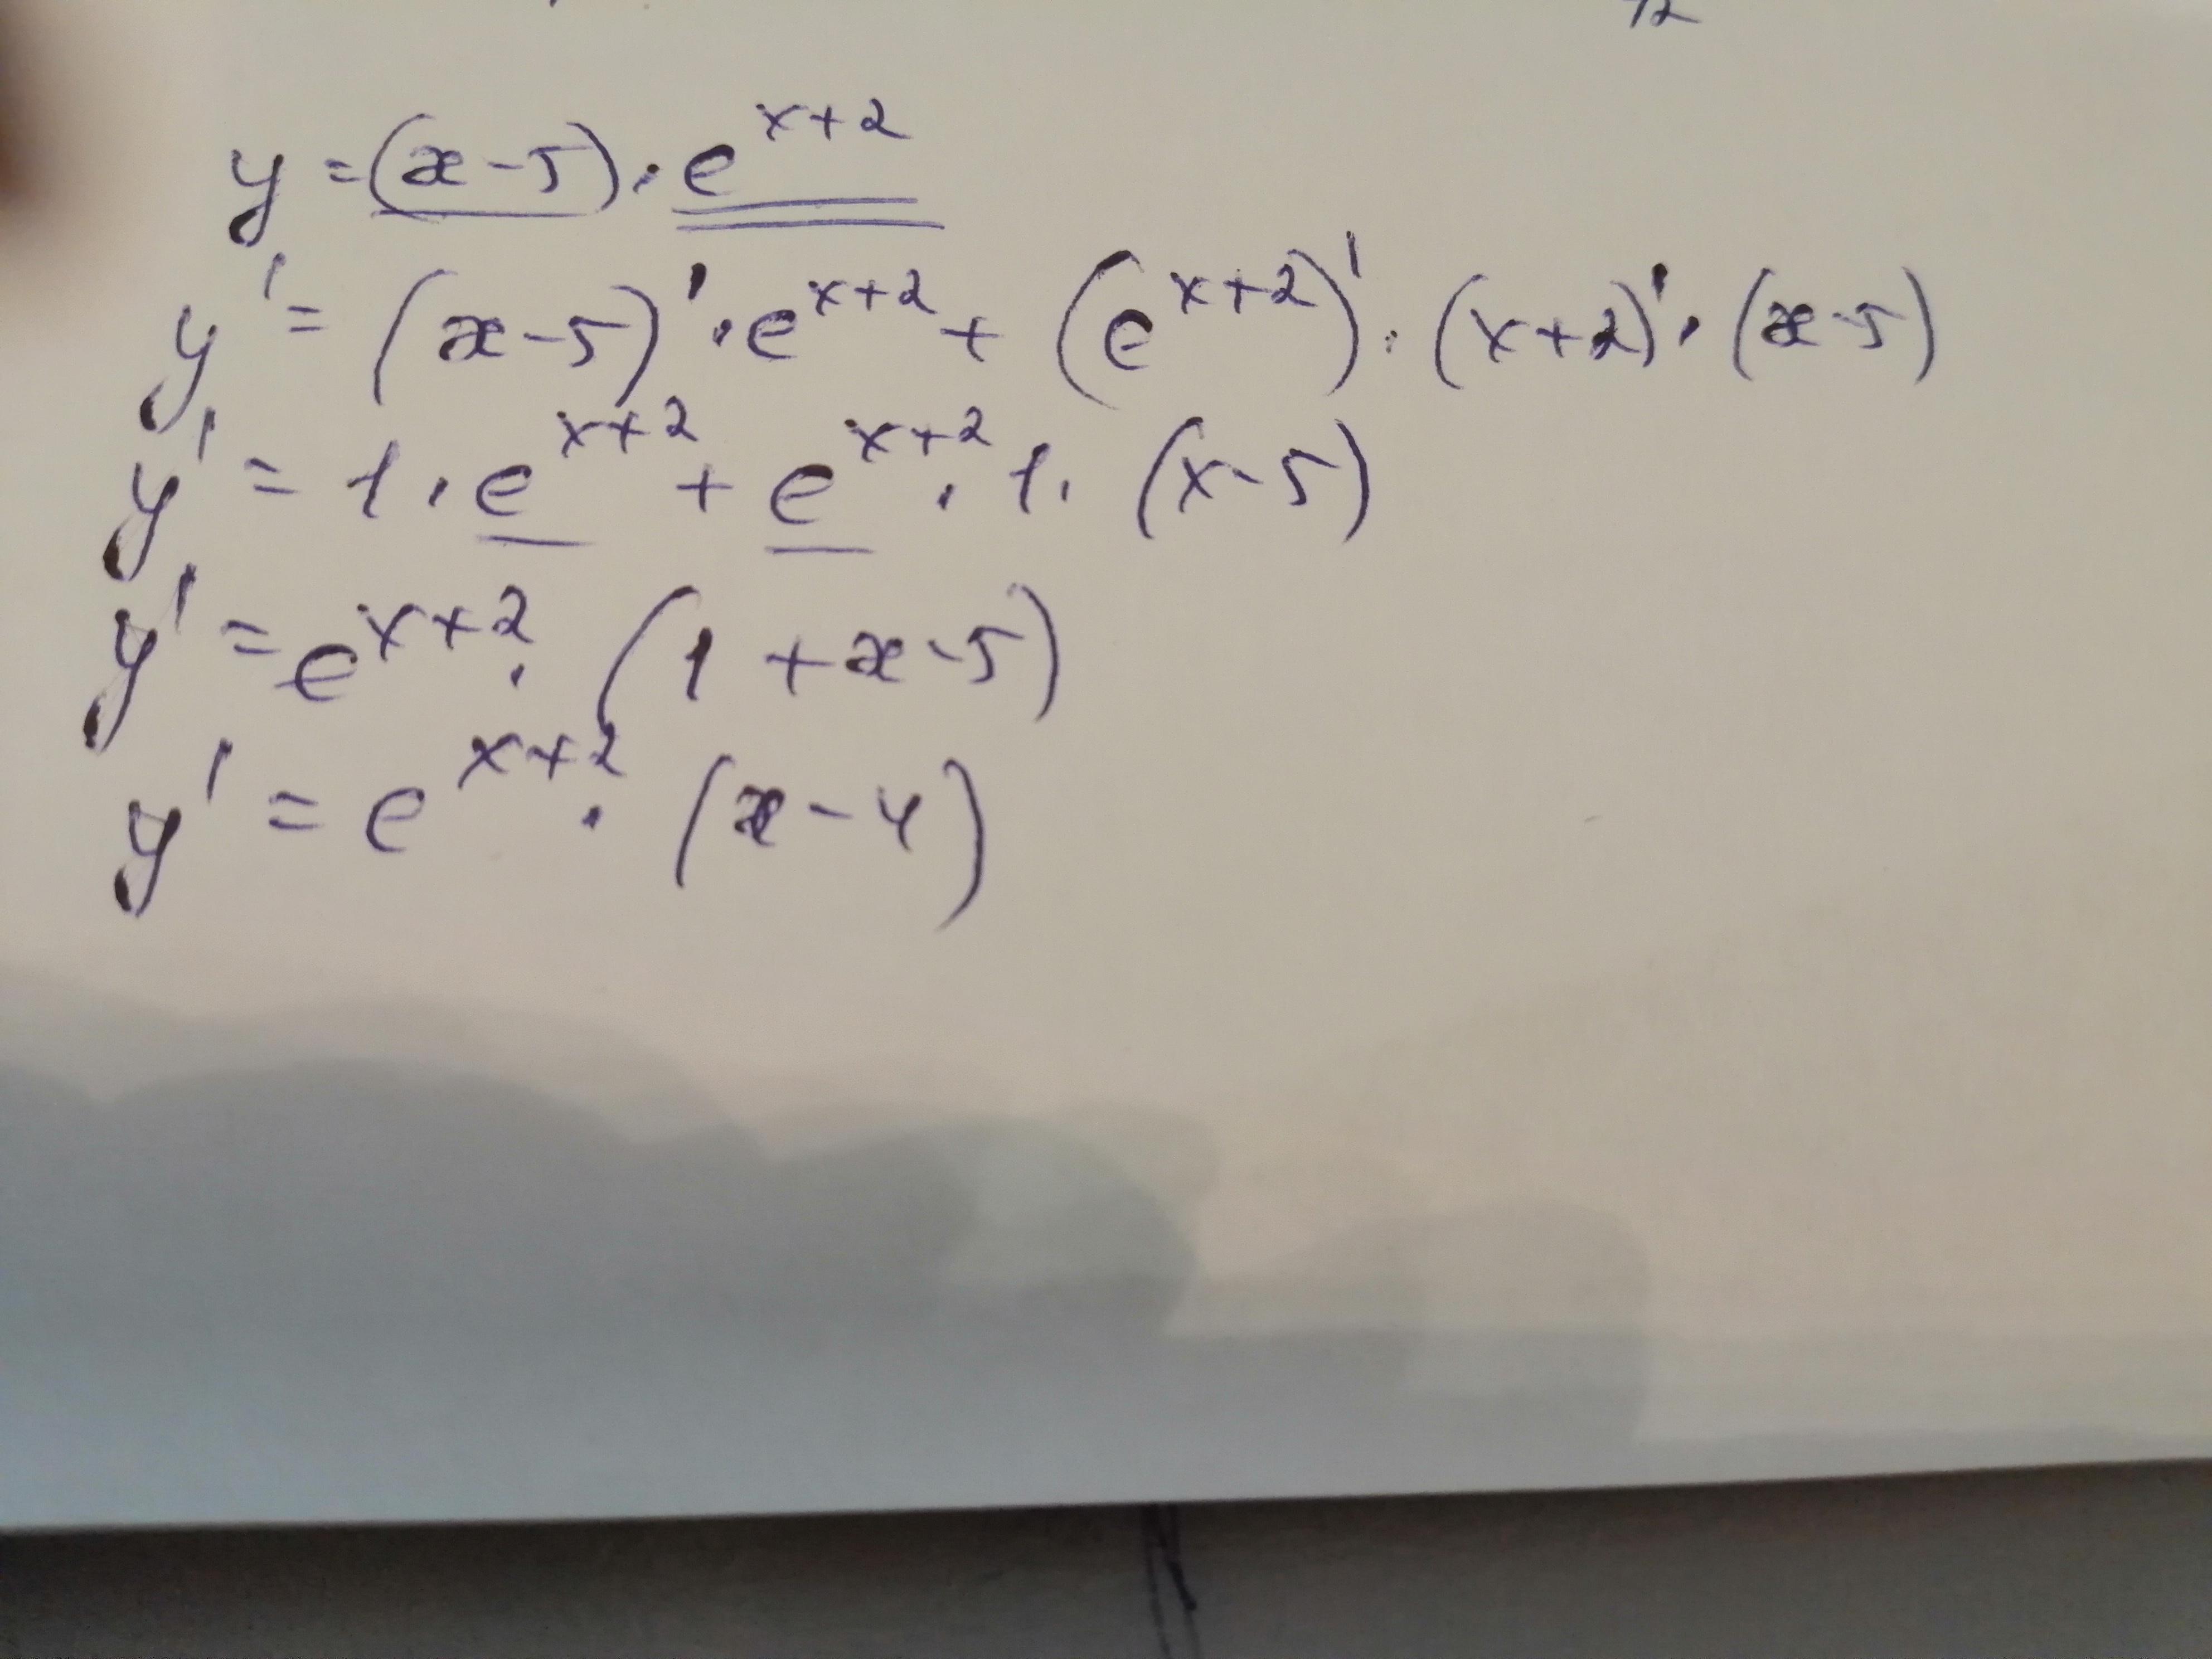 y = (x-5) · e^{x+2}
y' = (x-5)' · e^{x+2} + (e^{x+2})' · (x+2)' · (x-5)
y' = 1 · e^{x+2} + e^{x+2} · 1 · (x-5)
y' = e^{x+2} · (1 + x-5)
y' = e^{x+2} · (x-4)